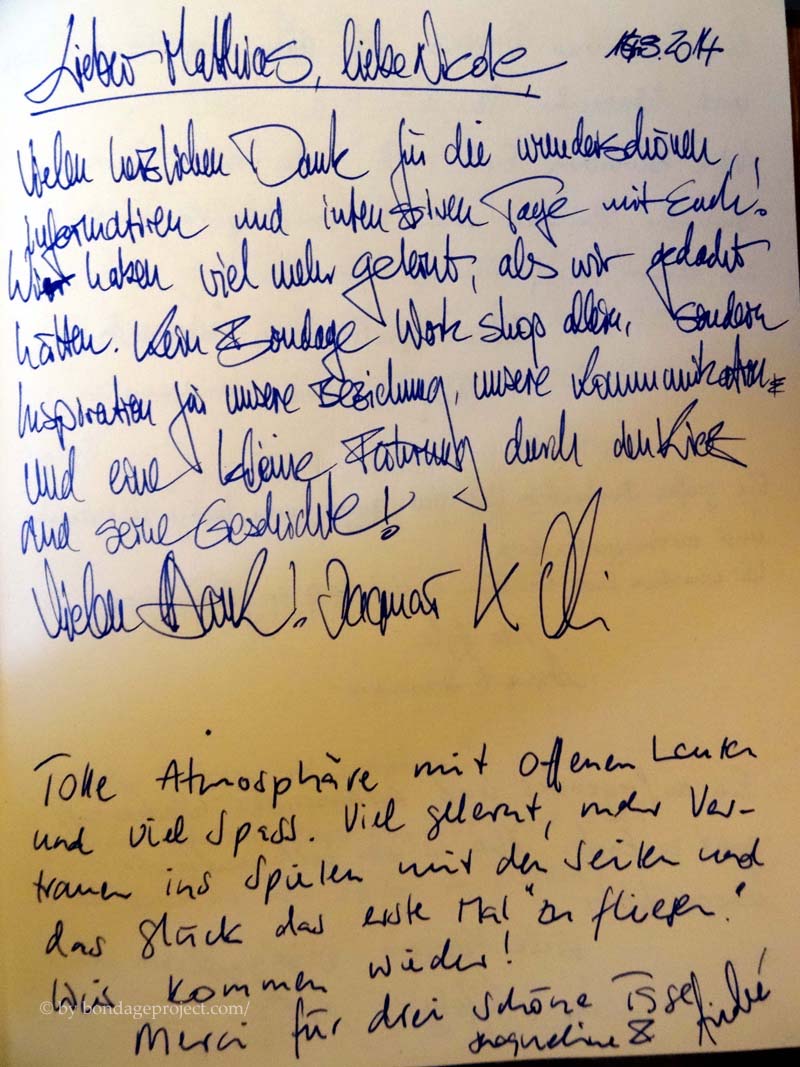 Lieber Matthias, liebe Nicole,
Vielen herzlichen Dank für die wunderschönen,
informativen und intensiven Tage mit Euch!
Wir haben viel mehr gelernt, als wir gedacht
hätten. Kein Bondage Workshop allein, sondern
Inspiration für unsere Beziehung, unsere Kommunikation
und eine kleine Führung durch den Kiez
und seine Geschichte!
Vielen Dank! Dagmar &
Tolle Atmosphäre mit offenen Leuten
und viel Spass. Viel gelernt, mehr Ver-
trauen ins Spielen mit den Seilen und
das Glück das erste Mal "zu fliegen."
Wir kommen wieder!
Merci für drei schöne Tage
Jacqueline & André
© by bondageproject.com/